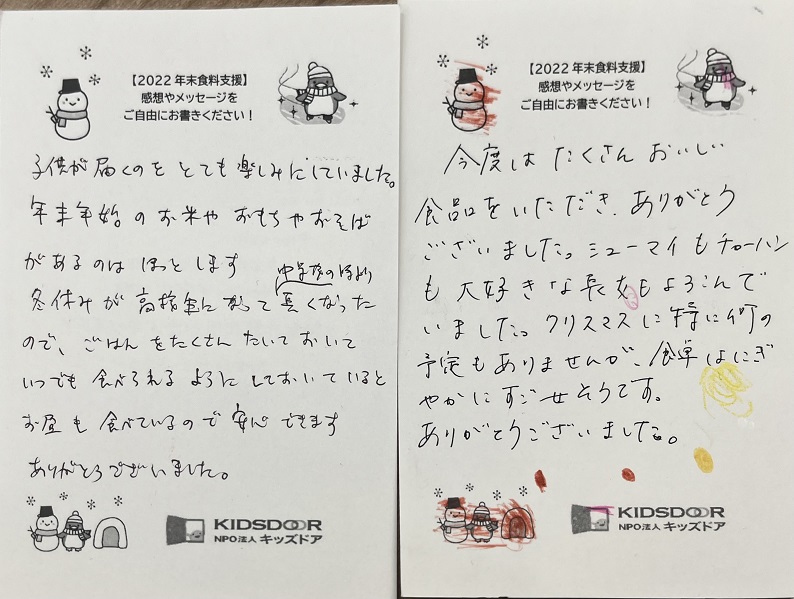 【2022年末食料支援】
感想やメッセージを
ご自由にお書きください！
子供が届くのをとても楽しみにしていました。
年末年始のお米やおもちやおそば
があるのはほっとします
中学校の時より
冬休みが高校生になって長くなった
ので、ごはんをたくさんたいておいて
いつでも食べられるようにしておいていると
お昼も食べているので安心できます
ありがとうございました。
KIDSDOOR
NPO法人 キッズドア
【2022年末食料支援】
感想やメッセージを
ご自由にお書きください！
今度はたくさんおいしい
食品をいただき、ありがとう
ございました。シューマイもチャーハン
も大好きな長女もよろこんで
いました。クリスマスに特に何の
予定もありませんが、食卓はにぎ
やかにすごせそうです。
ありがとうございました。
KIDSDOOR
NPO法人 キッズドア